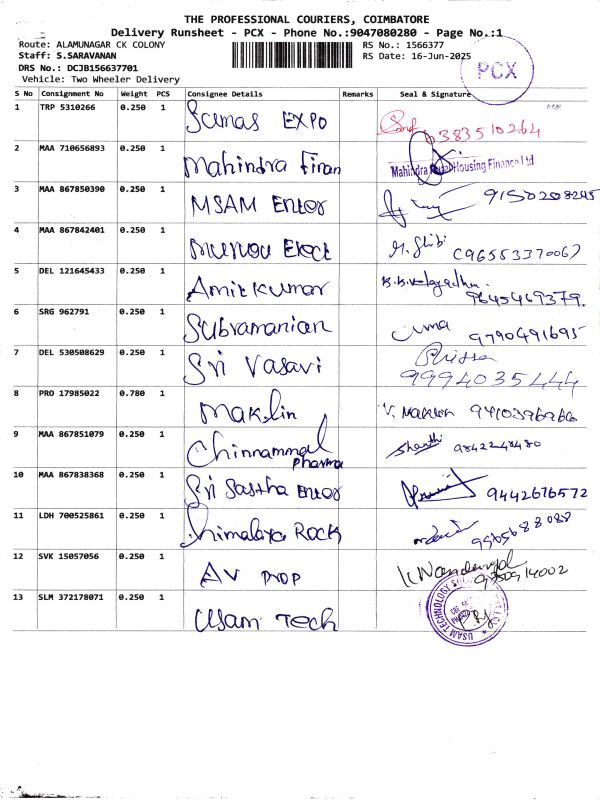 THE PROFESSIONAL COURIERS, COIMBATORE
Delivery Runsheet - PCX - Phone No.:9047080280 - Page No.:1
Route: ALAMUNAGAR CK COLONY
RS No.: 1566377
Staff: S.SARAVANAN
RS Date: 16-Jun-2025
DRS No.: DCJB156637701
PCX
Vehicle: Two Wheeler Delivery
S No Consignment No Weight PCS Consignee Details Remarks Seal & Signature
1 TRP 5310266 0.250 1 Sumas EXPO 6383510264
2 MAA 710656893 0.250 1 Mahindra Finan Mahindra Rural Housing Finance Ltd
3 MAA 867850390 0.250 1 MSAM Enter 9150208245
4 MAA 867842401 0.250 1
5 DEL 121645433 0.250 1 Amitkumar 9645469379.
6 SRG 962791 0.250 1 Subramanian uma 9790491695
7 DEL 530508629 0.250 1 Sri Vasavi 9994035444
8 PRO 17985022 0.780 1 Maklin
9 MAA 867851079 0.250 1 Chinnammal Pharma Shanthi 9842248480
10 MAA 867838368 0.250 1 Sri Sastha Enter 9442676572
11 LDH 700525861 0.250 1 himalaya Rock 9565688088
12 SVK 15057056 0.250 1 AV prop
13 SLM 372178071 0.250 1 Usam Tech USAM TECHNOLOGY